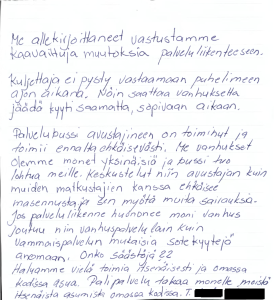 Me allekirjoittaneet vastustamme
kaavailtuja muutoksia palveluliikenteeseen.
Kuljettaja ei pysty vastaamaan puhelimeen
ajon aikana. Näin saattaa vanhukselta
jäädä kyyti saamatta, sopivaan aikaan.
Palvelubussi avustajineen on toiminut ja
toimii ennalta ehkäisevästi. Me vanhukset
olemme monet yksinäisiä ja bussi tuo
lohtua meille. Keskustelut niin avustajan kuin
muiden matkustajien kanssa ehkäisee
masennusta ja sen myötä muita sairauksia.
Jos palveluliikenne huononee moni vanhus
joutuu niin vanhuspalvelulain kuin
vammaispalvelun mukaisia sote kyytejä
anomaan. Onko säästöjä ??
Haluamme vielä toimia itsenäisesti ja omassa
kodissa asua. Palipalvelu takaa monelle meistä
itsenäistä asumista omassa kodissa. T.